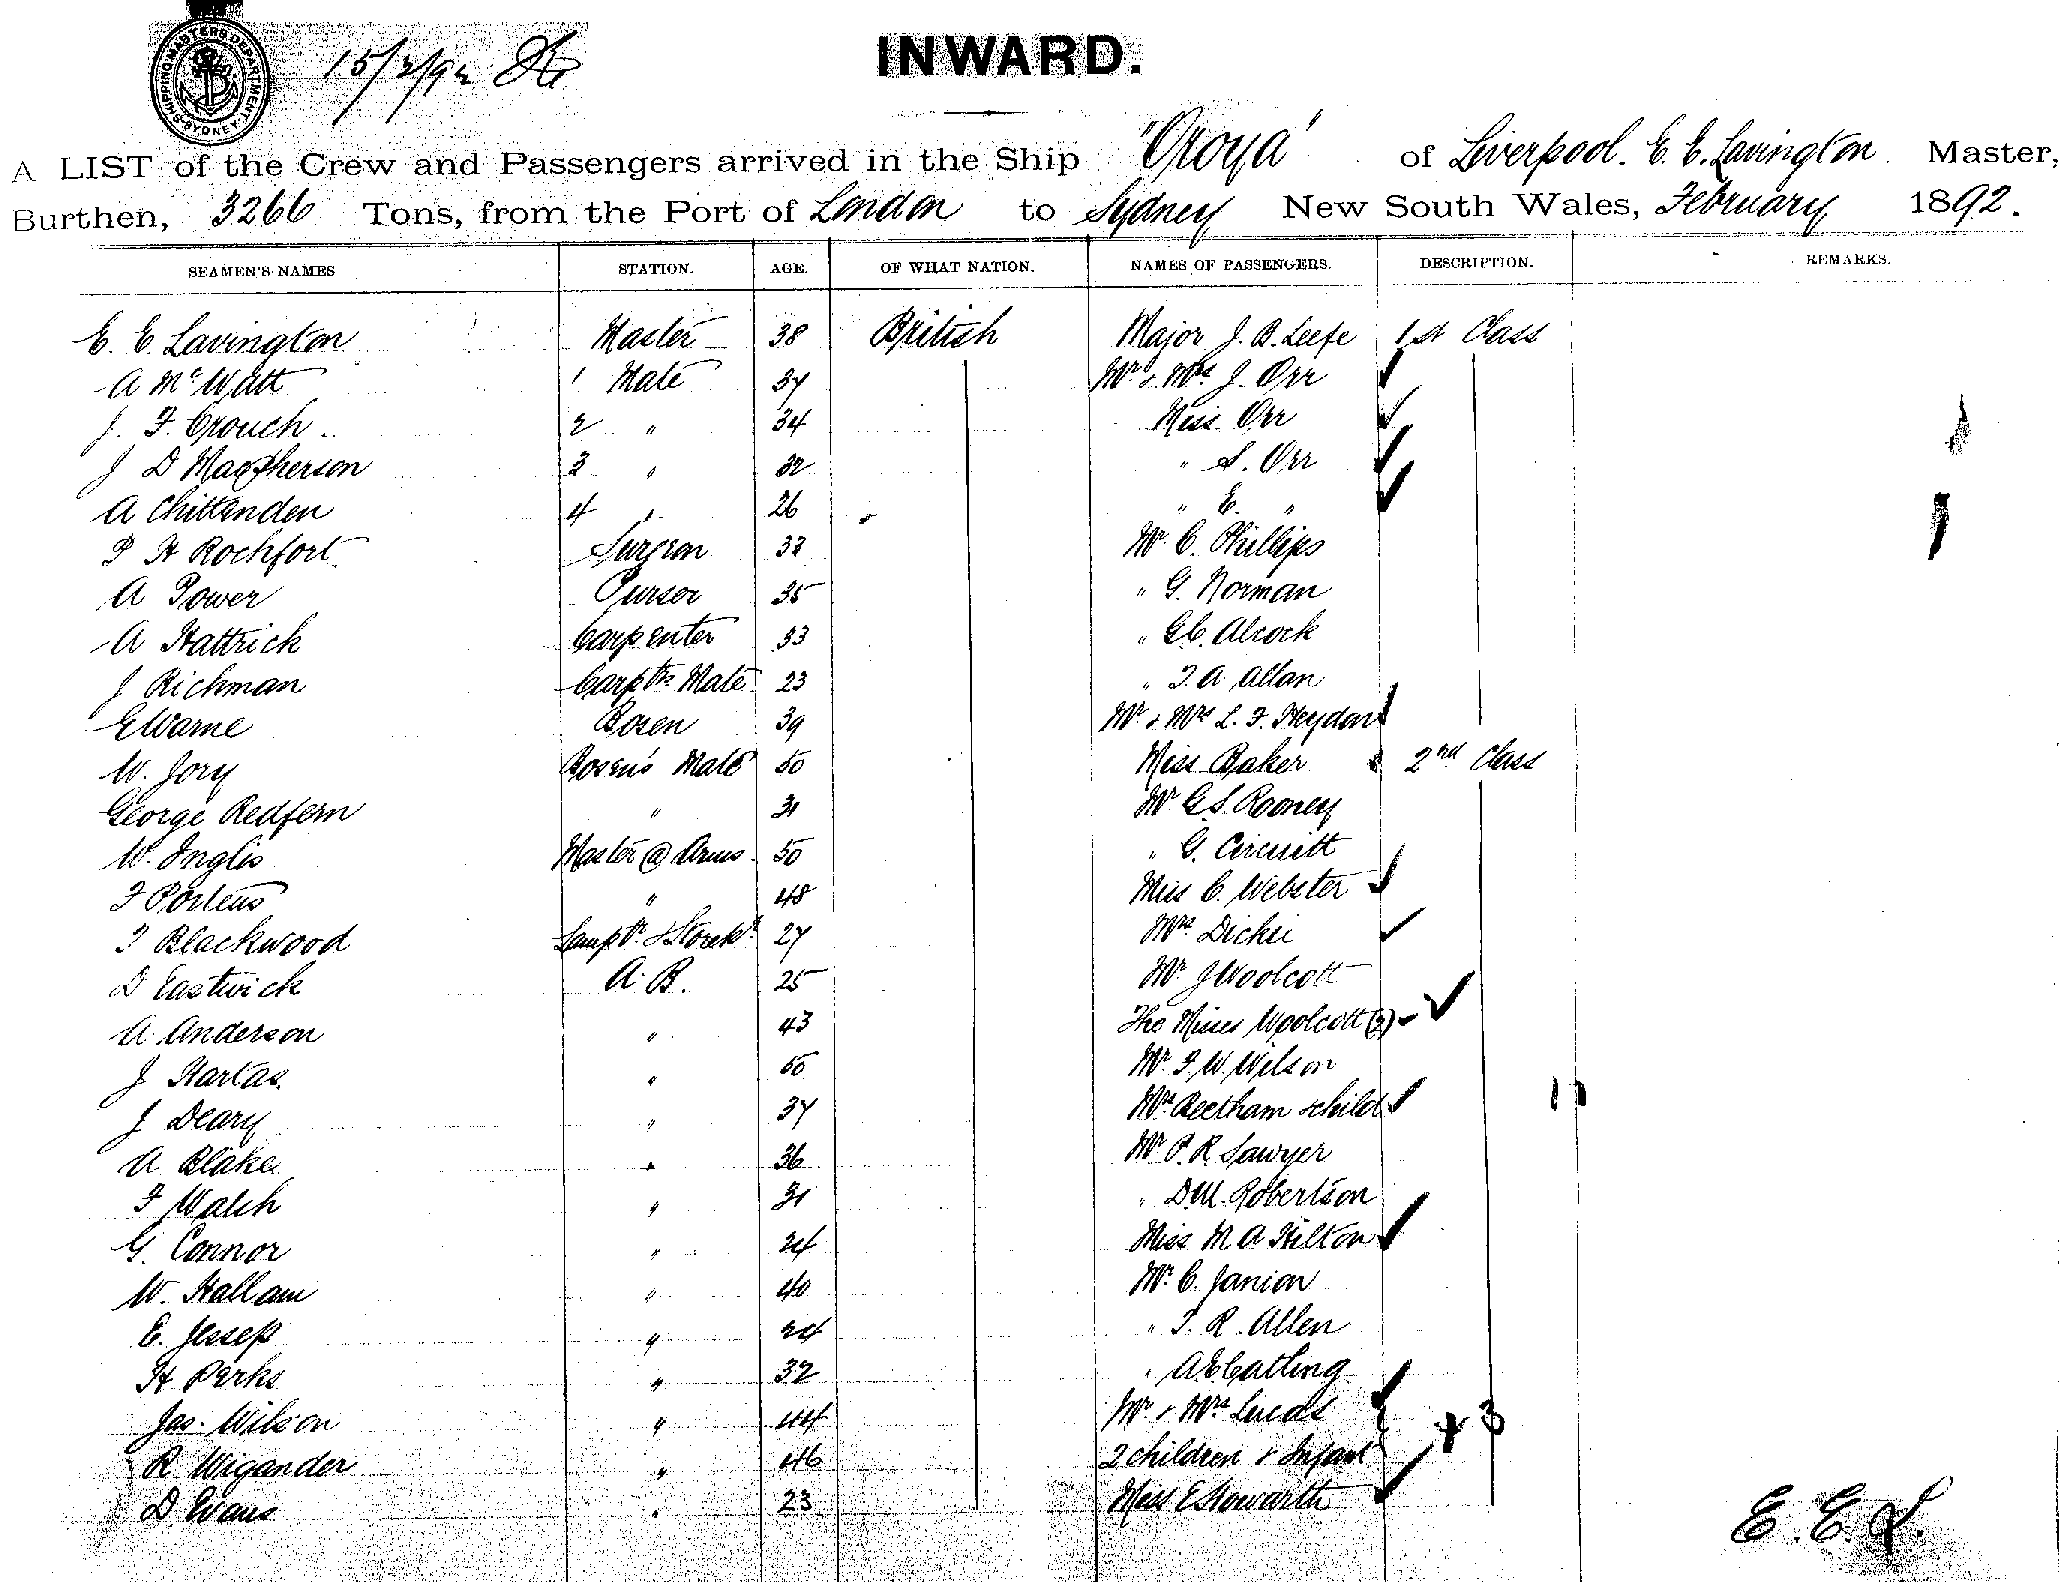 SHIPPING MASTER'S DEPARTMENT SYDNEY
15/2/92
INWARD.
A LIST of the Crew and Passengers arrived in the Ship "Oroya" of Liverpool. E. E. Lavington Master,
Burthen, 3266 Tons, from the Port of London to Sydney New South Wales, February 1892.
SEAMEN'S NAMES STATION. AGE. OF WHAT NATION. NAMES OF PASSENGERS. DESCRIPTION. REMARKS.
E. E. Lavington Master 38 British Major J. B. Leefe 1st Class
A McWatt 1 Mate 37 Mr & Mrs J. Orr
J. F. Crouch 2 " 34 Miss Orr
J D MacPherson 3 " 32 " S. Orr
A Chittenden 4 " 26 " E. "
P H Rochfort Surgeon 33 Mr C. Phillips
A Power Purser 35 " G. Norman
A Hattrick Carpenter 33 " G C. Alcock
J Richman Carptrs Mate 23 " T. A. Allan
E Warne Bosen 39 Mr & Mrs L. F. Heydon
W. Jory Bosen's Mate 50 Miss Baker 2nd Class
George Redfern " 31 Mr G S. Rooney
W. Inglis Master @ Arms 50 " G. Circuitt
F Porteus " 48 Miss C. Webster
T Blackwood Lampr. & Storekr. 27 Mrs. Dickie
D Eastwick A. B. 25 Mr J Woolcott
A Anderson " 43 The Misses Woolcott (2)
J Hartas " 50 Mr F. W. Wilson
J Deary " 37 Mrs. Beetham & child
A Blake " 36 Mr P. R. Sawyer
F Walsh " 31 " D. M. Robertson
G. Connor " 24 Miss M A Hilton
W. Hallam " 40 Mr. C. Janion
E. Jessep " 24 " T. R. Allen
H Perks " 32 " A E Catling
Jas. Wilson " 44 Mr & Mrs Lucas
R Wigander " 46 2 children & Infant + 3
D Evans " 23 Miss E Howarth
E. E. L.